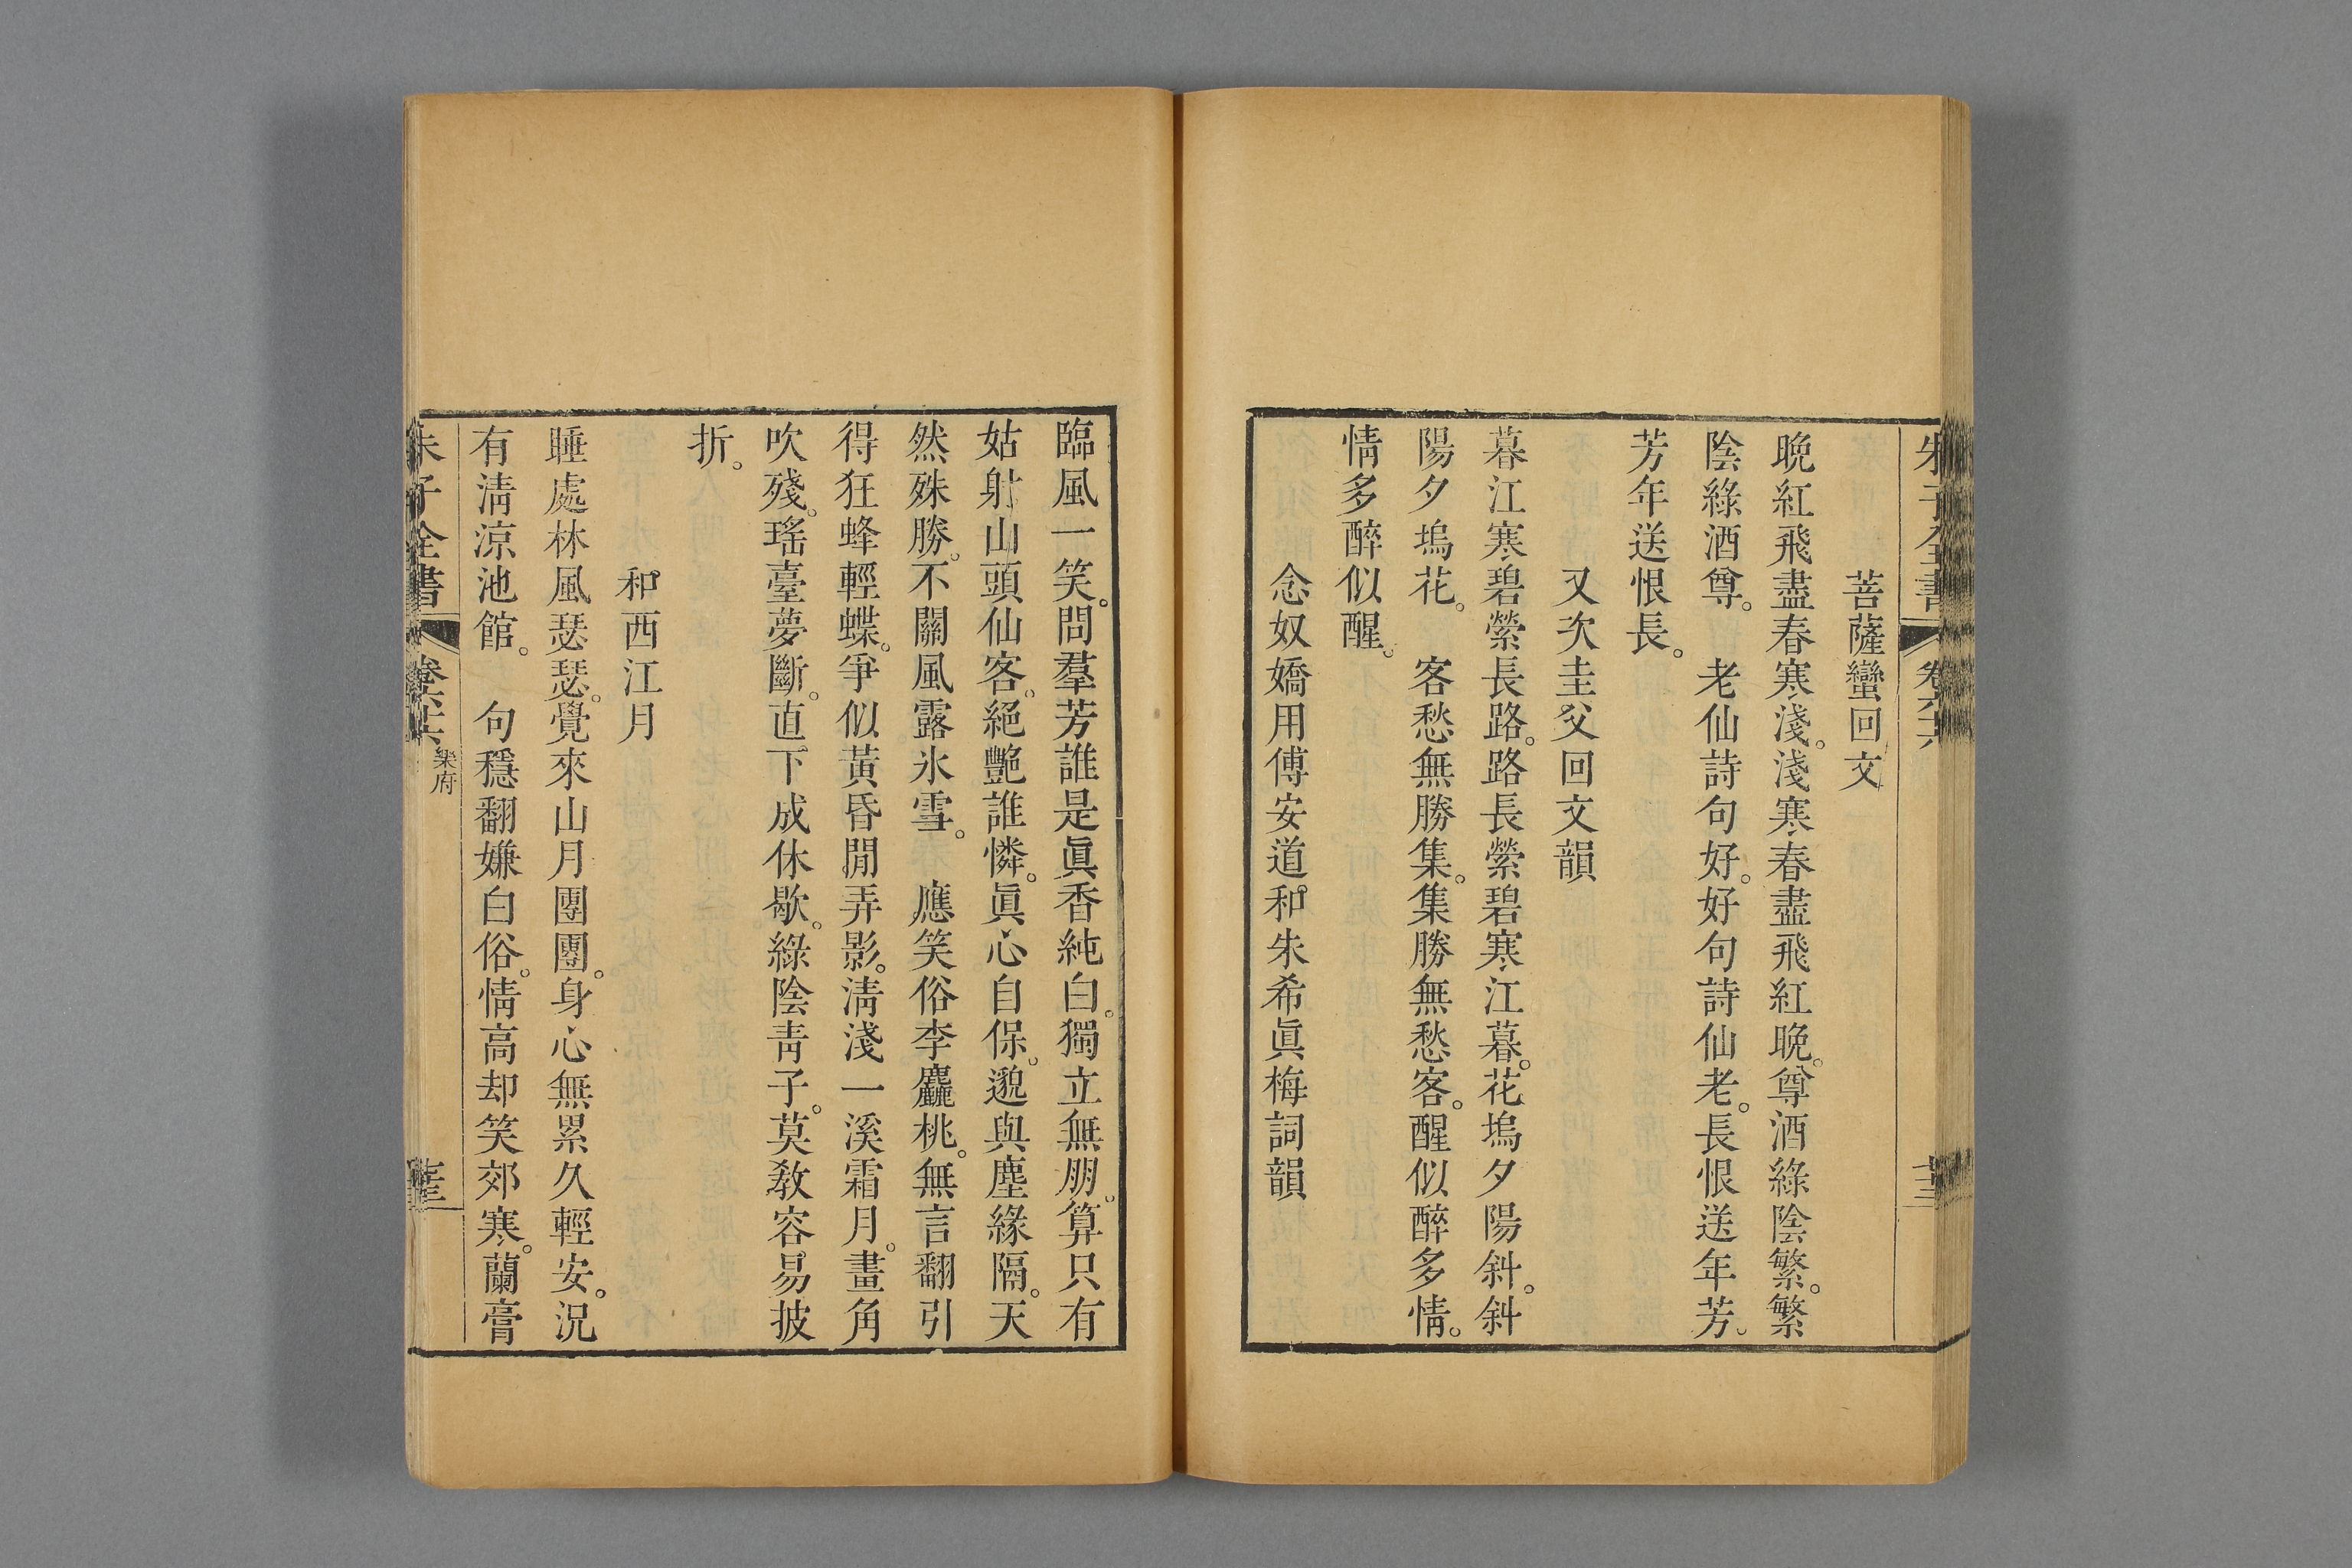 朱子全書 卷六十六
菩薩蠻回文
晚紅飛盡春寒淺。淺寒春盡飛紅晚。尊酒綠陰繁。繁
陰綠酒尊。　老仙詩句好。好句詩仙老。長恨送年芳。
芳年送恨長。
又次圭父回文韻
暮江寒碧縈長路。路長縈碧寒江暮。花塢夕陽斜。斜
陽夕塢花。　客愁無勝集。集勝無愁客。醒似醉多情。
情多醉似醒。
念奴嬌用傅安道和朱希眞梅詞韻
臨風一笑。問羣芳誰是眞香純白。獨立無朋。算只有
姑射山頭仙客。絕艷誰憐。眞心自保。邈與塵緣隔。天
然殊勝。不關風露氷雪。　應笑俗李麤桃。無言翻引
得狂蜂輕蝶。爭似黃昏閒弄影。淸淺一溪霜月。畫角
吹殘。瑤臺夢斷。直下成休歇。綠陰靑子。莫敎容易披
折。
和西江月
睡處林風瑟瑟。覺來山月團團。身心無累久輕安。況
有淸涼池館。　句穩翻嫌白俗。情高却笑郊寒。蘭膏
朱子全書 卷六十六 樂府